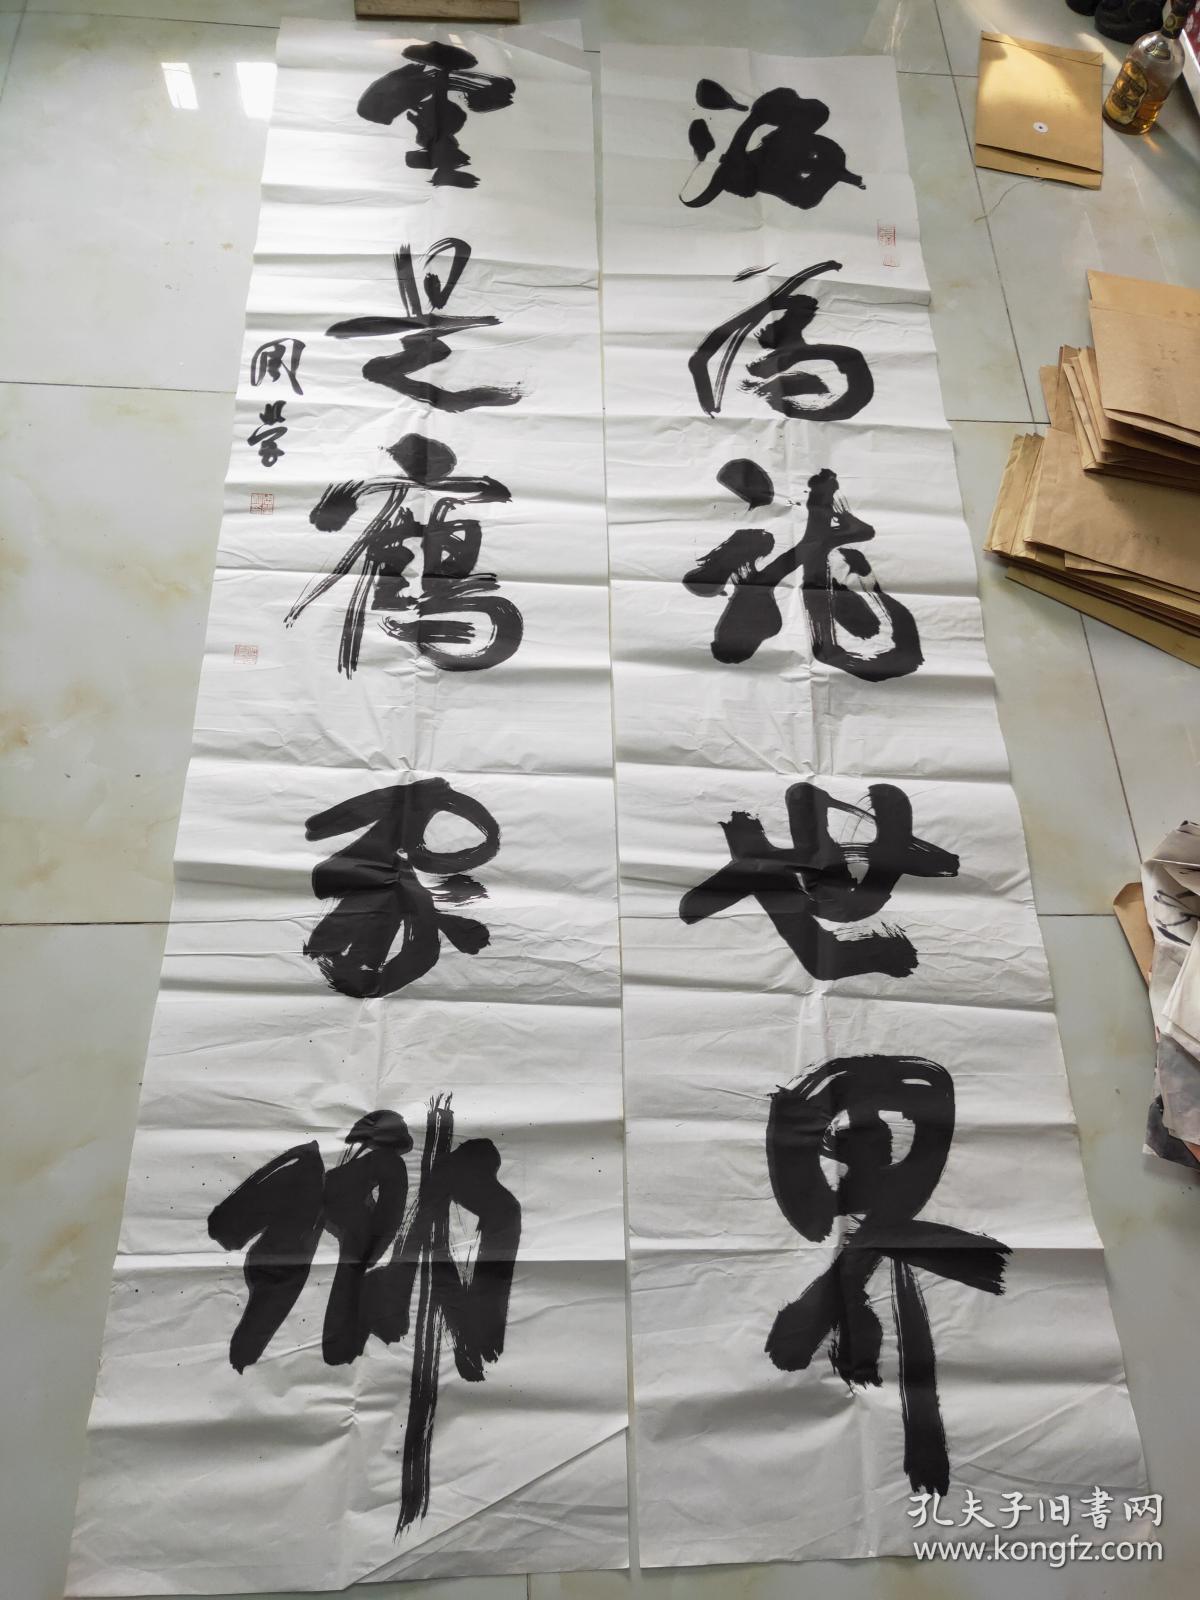 海为龙世界
云是鹤家乡
孔夫子旧书网
www.kongfz.com